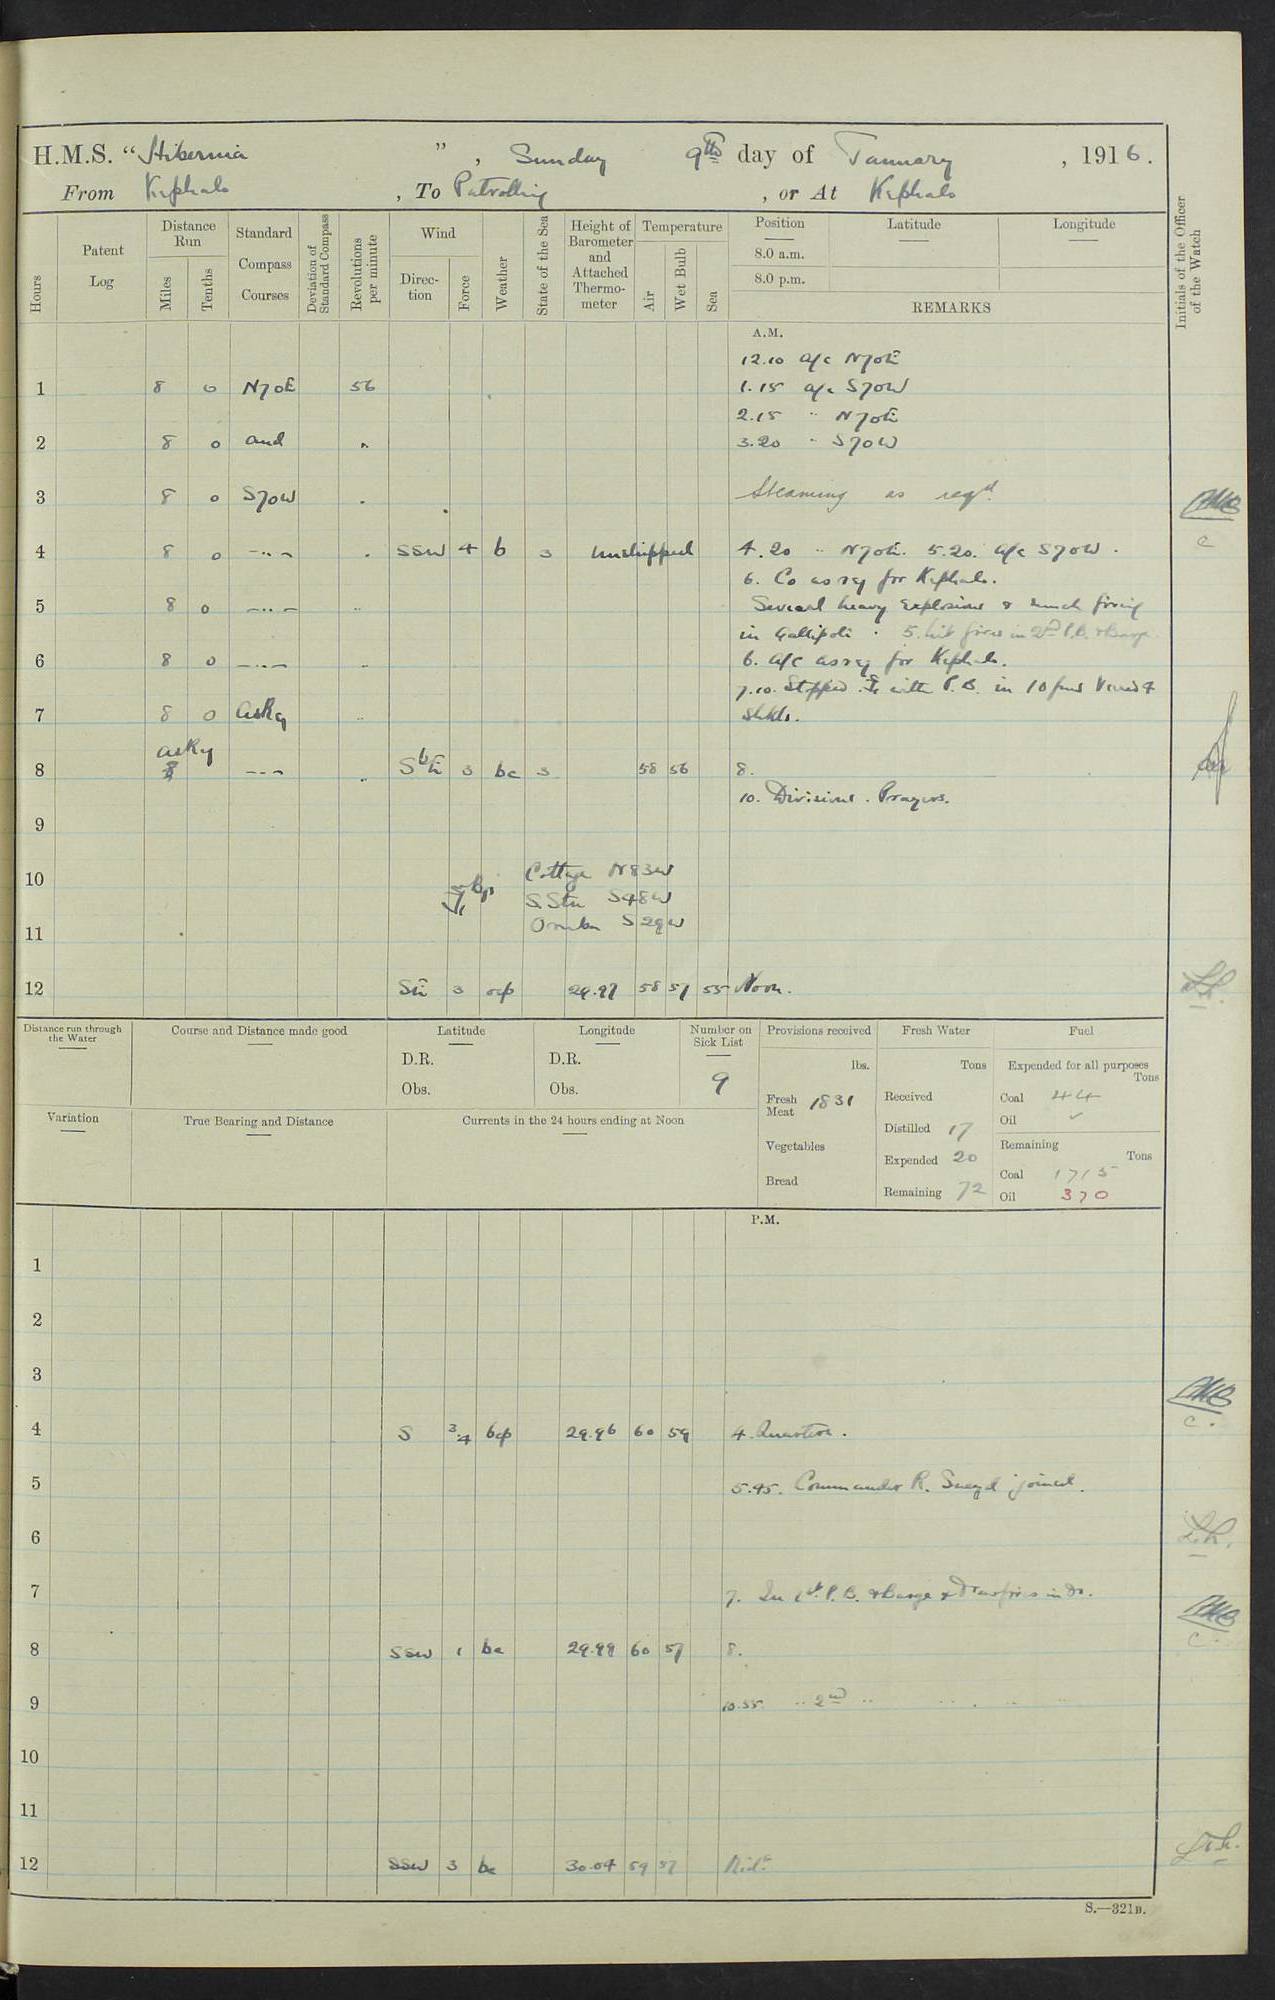 H.M.S. "Hibernia", Sunday 9th day of January, 1916.
From Kephalo, To Patrolling, or At Kephalo
Hours
Patent Log
Distance Run
Miles
Tenths
Standard Compass Courses
Deviation of Standard Compass
Revolutions per minute
Wind
Direction
Force
Weather
State of the Sea
Height of Barometer and Attached Thermometer
Temperature
Air
Wet Bulb
Sea
Position
Latitude
Longitude
8.0 a.m.
8.0 p.m.
REMARKS
Initials of the Officer of the Watch
A.M.
12.10 a/c N70E
1 8 0 N70E 56 1.15 a/c S70W
2.15 " N70E
2 8 0 and " 3.20 " S70W
3 8 0 S70W " Steaming as reqd.
4 8 0 -..- " SSW 4 b 3 Unshipped 4.20 " N70E. 5.20. a/c S70W.
6. Co as req for Kephalo.
5 8 0 -..- " Several heavy explosions & much firing
in Gallipoli. 5. Lit fires in 2nd P.B. & Barge.
6 8 0 -..- " 6. a/c as req for Kephalo.
7.10. Stopped. with P.B. in 10 fms Veered 4
7 8 0 asReq " shkls.
asReq
8 --- " SbE 3 bc 3 58 56 8.
10. Divisions. Prayers.
9
10 Cottage N83W
S48W
11 S29W
12 SE 3 ocp 29.97 58 57 55 Noon.
Distance run through the Water
Course and Distance made good
Latitude
D.R.
Obs.
Longitude
D.R.
Obs.
Number on Sick List
9
Provisions received
lbs.
Fresh Meat 1831
Vegetables
Bread
Fresh Water
Tons
Received
Distilled 17
Expended 20
Remaining 72
Fuel
Expended for all purposes
Tons
Coal 44
Oil ✓
Remaining
Tons
Coal 1715
Oil 370
Variation
True Bearing and Distance
Currents in the 24 hours ending at Noon
P.M.
1
2
3
4 S 3.4 bcp 29.96 60 59 4. Quarters.
5 5.45. Commander R. Sneyd joined.
6
7 7. In 1st P.B. & Barge & Draw fires in Do.
8 SSW 1 bc 29.99 60 57 8.
9 10.55. " 2nd " " " "
10
11
12 SSW 3 bc 30.04 59 57 Midt.
S.—321B.